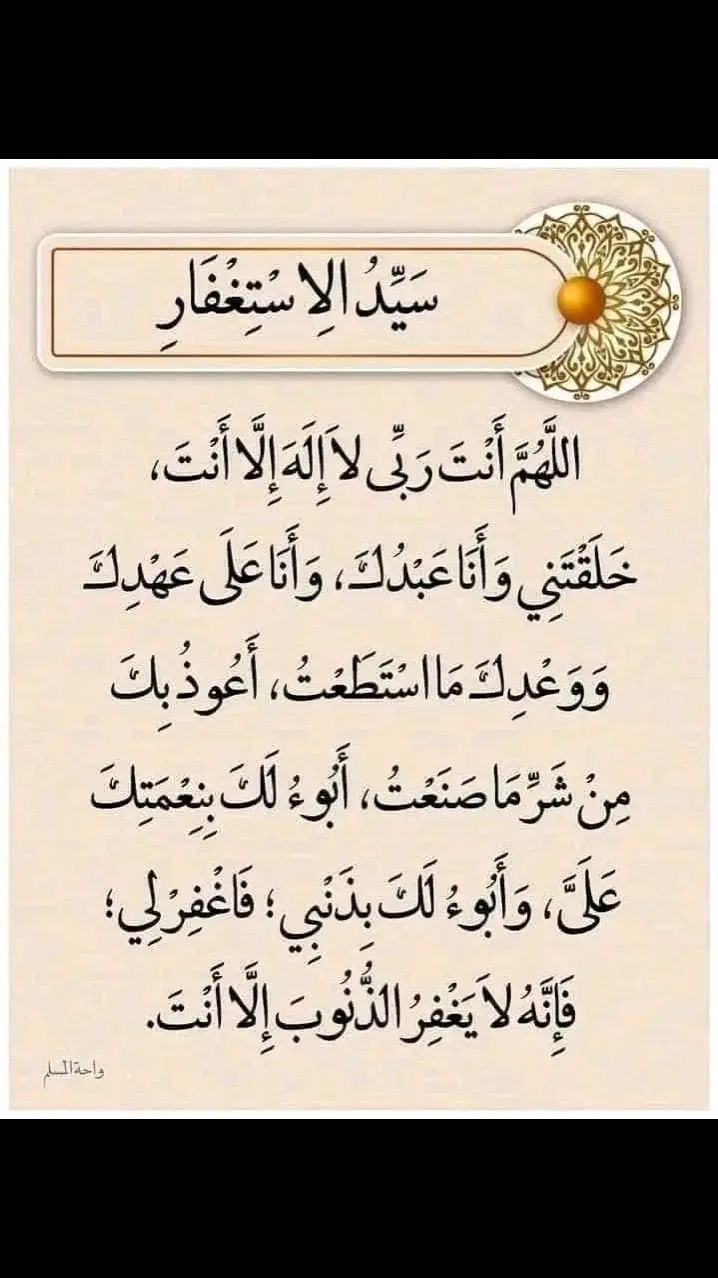 سَيِّدُ الِاسْتِغْفَارِ
اللَّهُمَّ أَنْتَ رَبِّى لاَ إِلَهَ إِلَّا أَنْتَ،
خَلَقْتَنِي وَأَنَا عَبْدُكَ، وَأَنَا عَلَى عَهْدِكَ
وَوَعْدِكَ مَا اسْتَطَعْتُ، أَعُوذُ بِكَ
مِنْ شَرِّ مَا صَنَعْتُ، أَبُوءُ لَكَ بِنِعْمَتِكَ
عَلَىَّ، وَأَبُوءُ لَكَ بِذَنْبِي؛ فَاغْفِرْ لِي؛
فَإِنَّهُ لاَ يَغْفِرُ الذُّنُوبَ إِلَّا أَنْتَ.
واحة المسلم